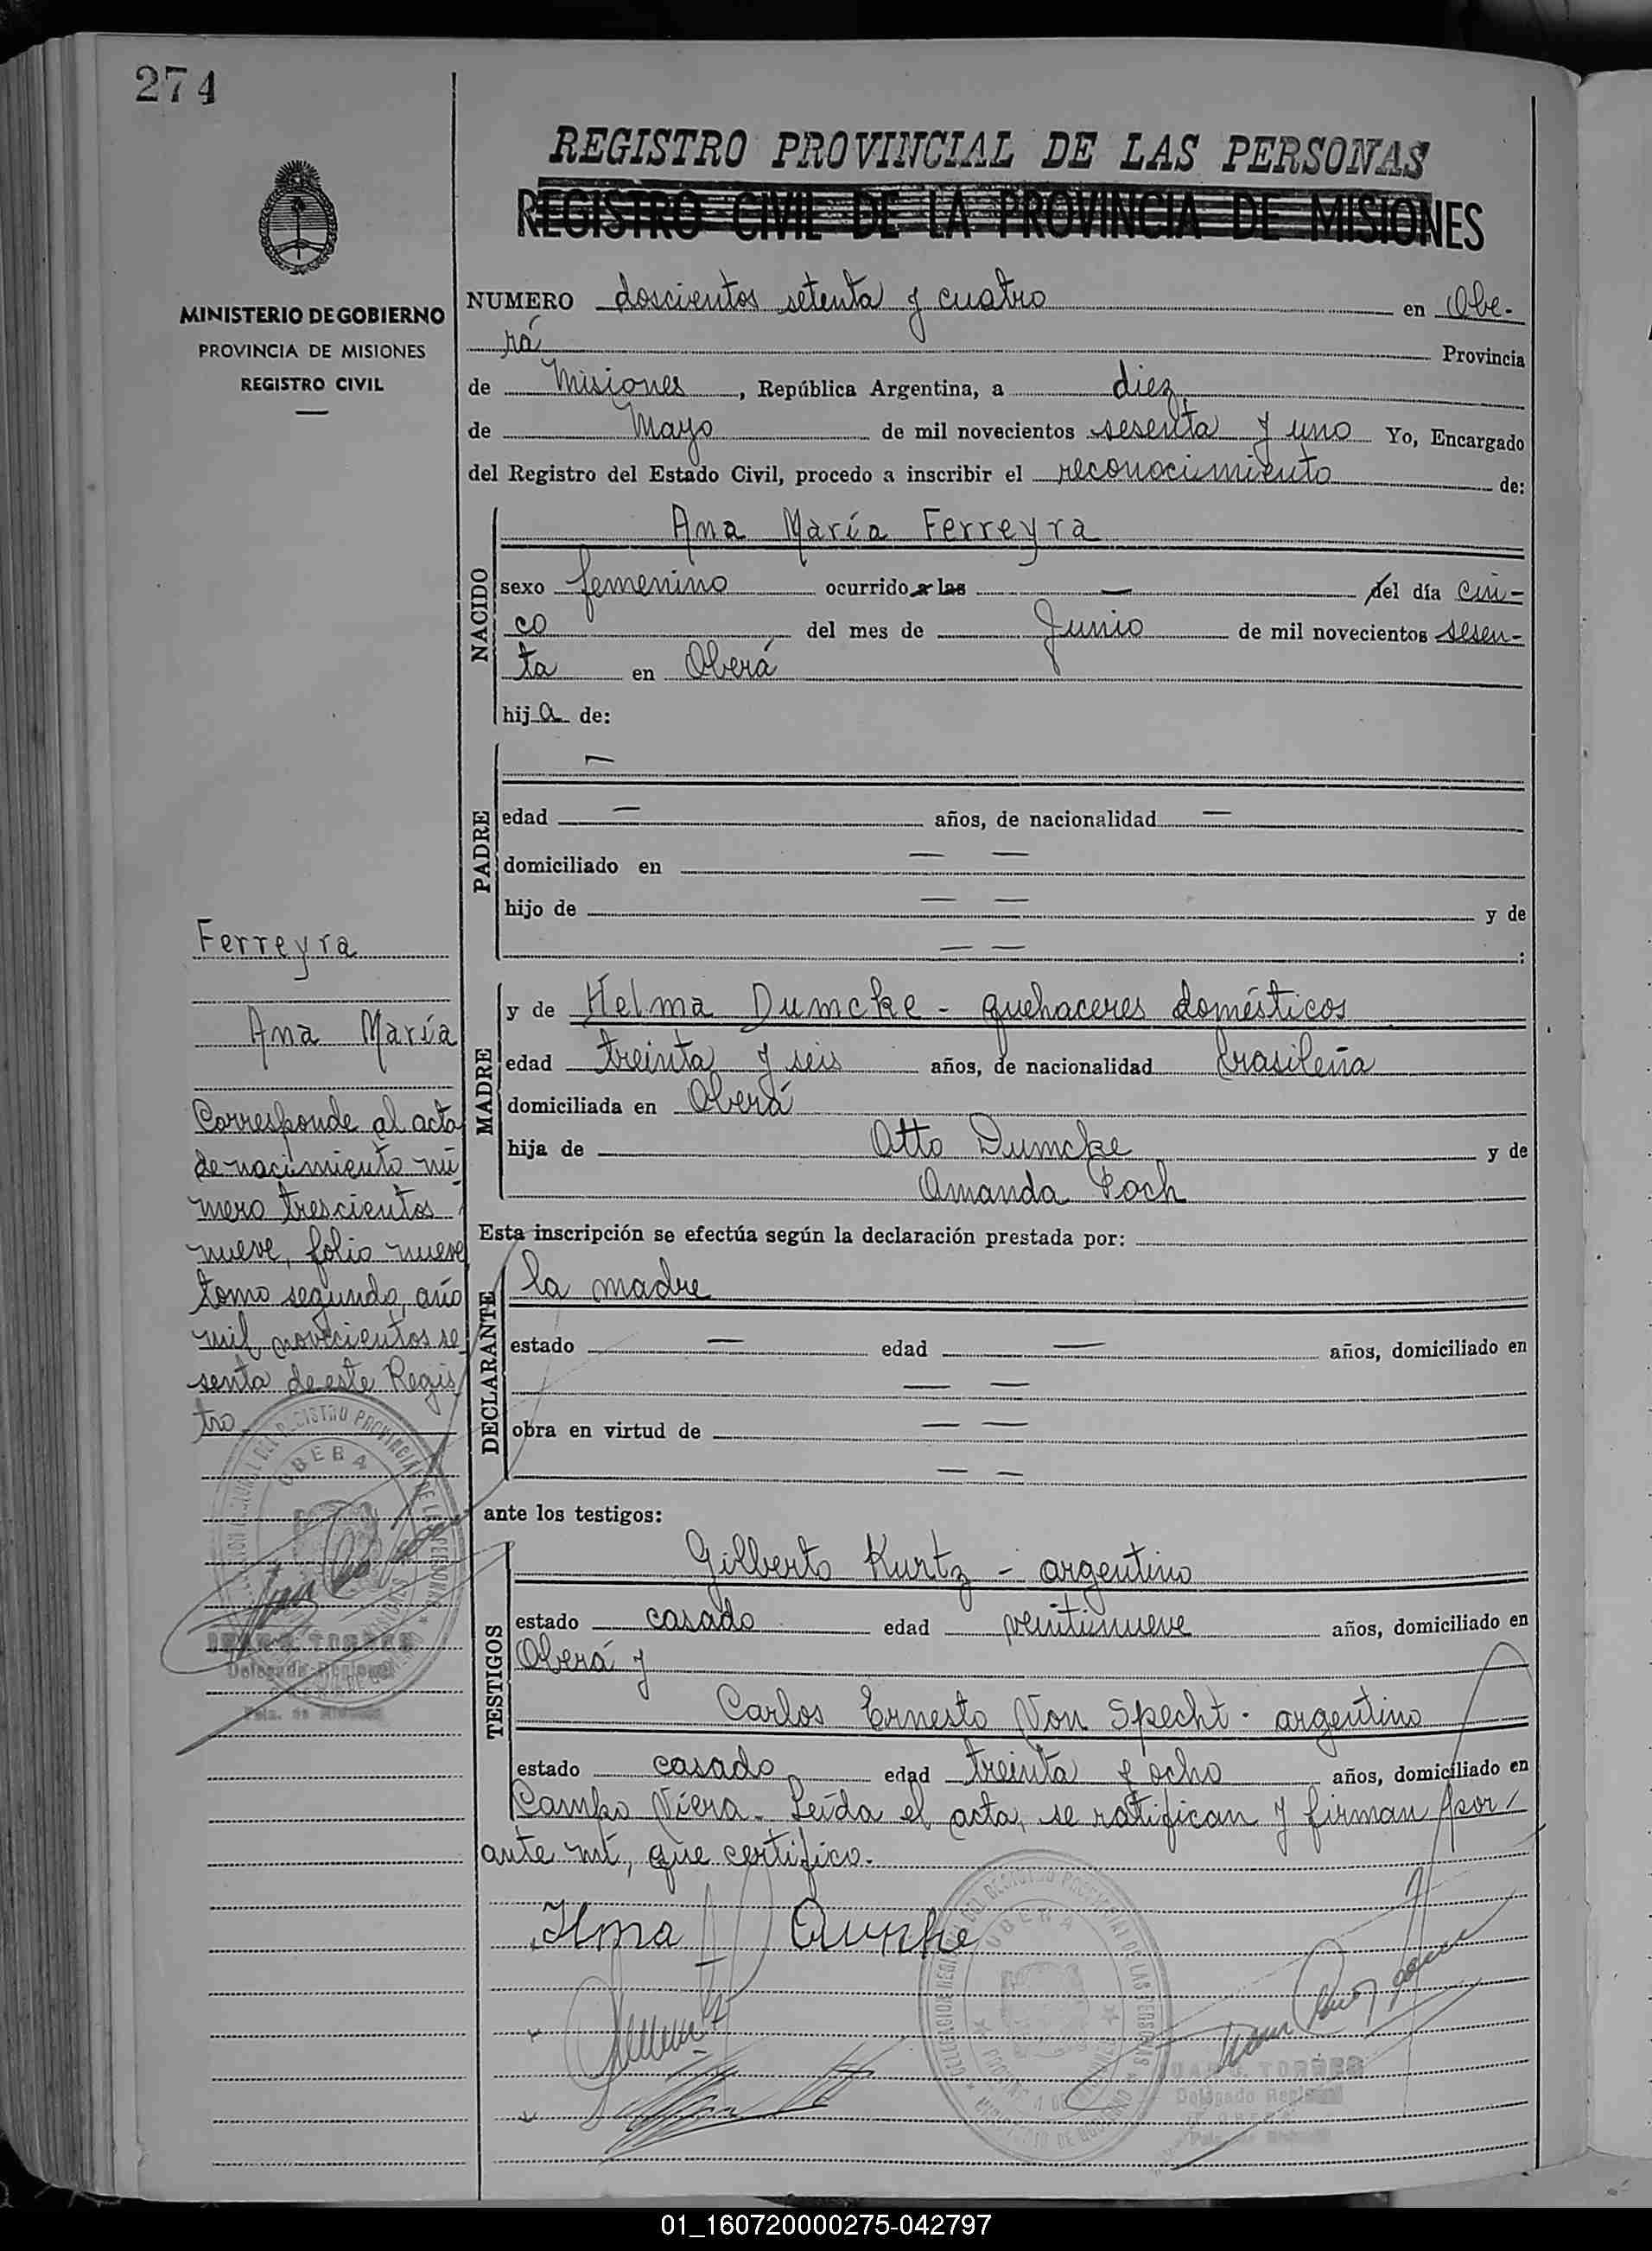 274
REGISTRO PROVINCIAL DE LAS PERSONAS
REGISTRO CIVIL DE LA PROVINCIA DE MISIONES
MINISTERIO DE GOBIERNO
PROVINCIA DE MISIONES
REGISTRO CIVIL
NUMERO doscientos setenta y cuatro en Obe-
rá Provincia
de Misiones, República Argentina, a diez
de Mayo de mil novecientos sesenta y uno Yo, Encargado
del Registro del Estado Civil, procedo a inscribir el reconocimiento de:
NACIDO
Ana María Ferreyra
sexo femenino ocurrido a las — del día cin-
co del mes de Junio de mil novecientos sesen-
ta en Oberá
hija de:
PADRE
—
edad — años, de nacionalidad —
domiciliado en — —
hijo de — — y de
— — :
MADRE
y de Helma Dumcke - quehaceres domésticos
edad treinta y seis años, de nacionalidad brasileña
domiciliada en Oberá
hija de Otto Dumcke y de
Amanda Poch
Esta inscripción se efectúa según la declaración prestada por:
DECLARANTE
la madre
estado — edad — años, domiciliado en
— —
obra en virtud de — —
— —
ante los testigos:
TESTIGOS
Gilberto Kurtz - argentino
estado casado edad veintinueve años, domiciliado en
Oberá y
Carlos Ernesto Von Specht - argentino
estado casado edad treinta y ocho años, domiciliado en
Campo Viera - Leída el acta, se ratifican y firman por
ante mí, que certifico.
Ferreyra
Ana María
Corresponde al acta
de nacimiento nú
mero trescientos
nueve, folio nueve
tomo segundo, año
mil novecientos se
senta de este Regis
tro
OBERA
TORRES
Delegado Regional
Ilma Dumke
OBERA
JUAN C. TORRES
Delegado Regional
01_160720000275-042797